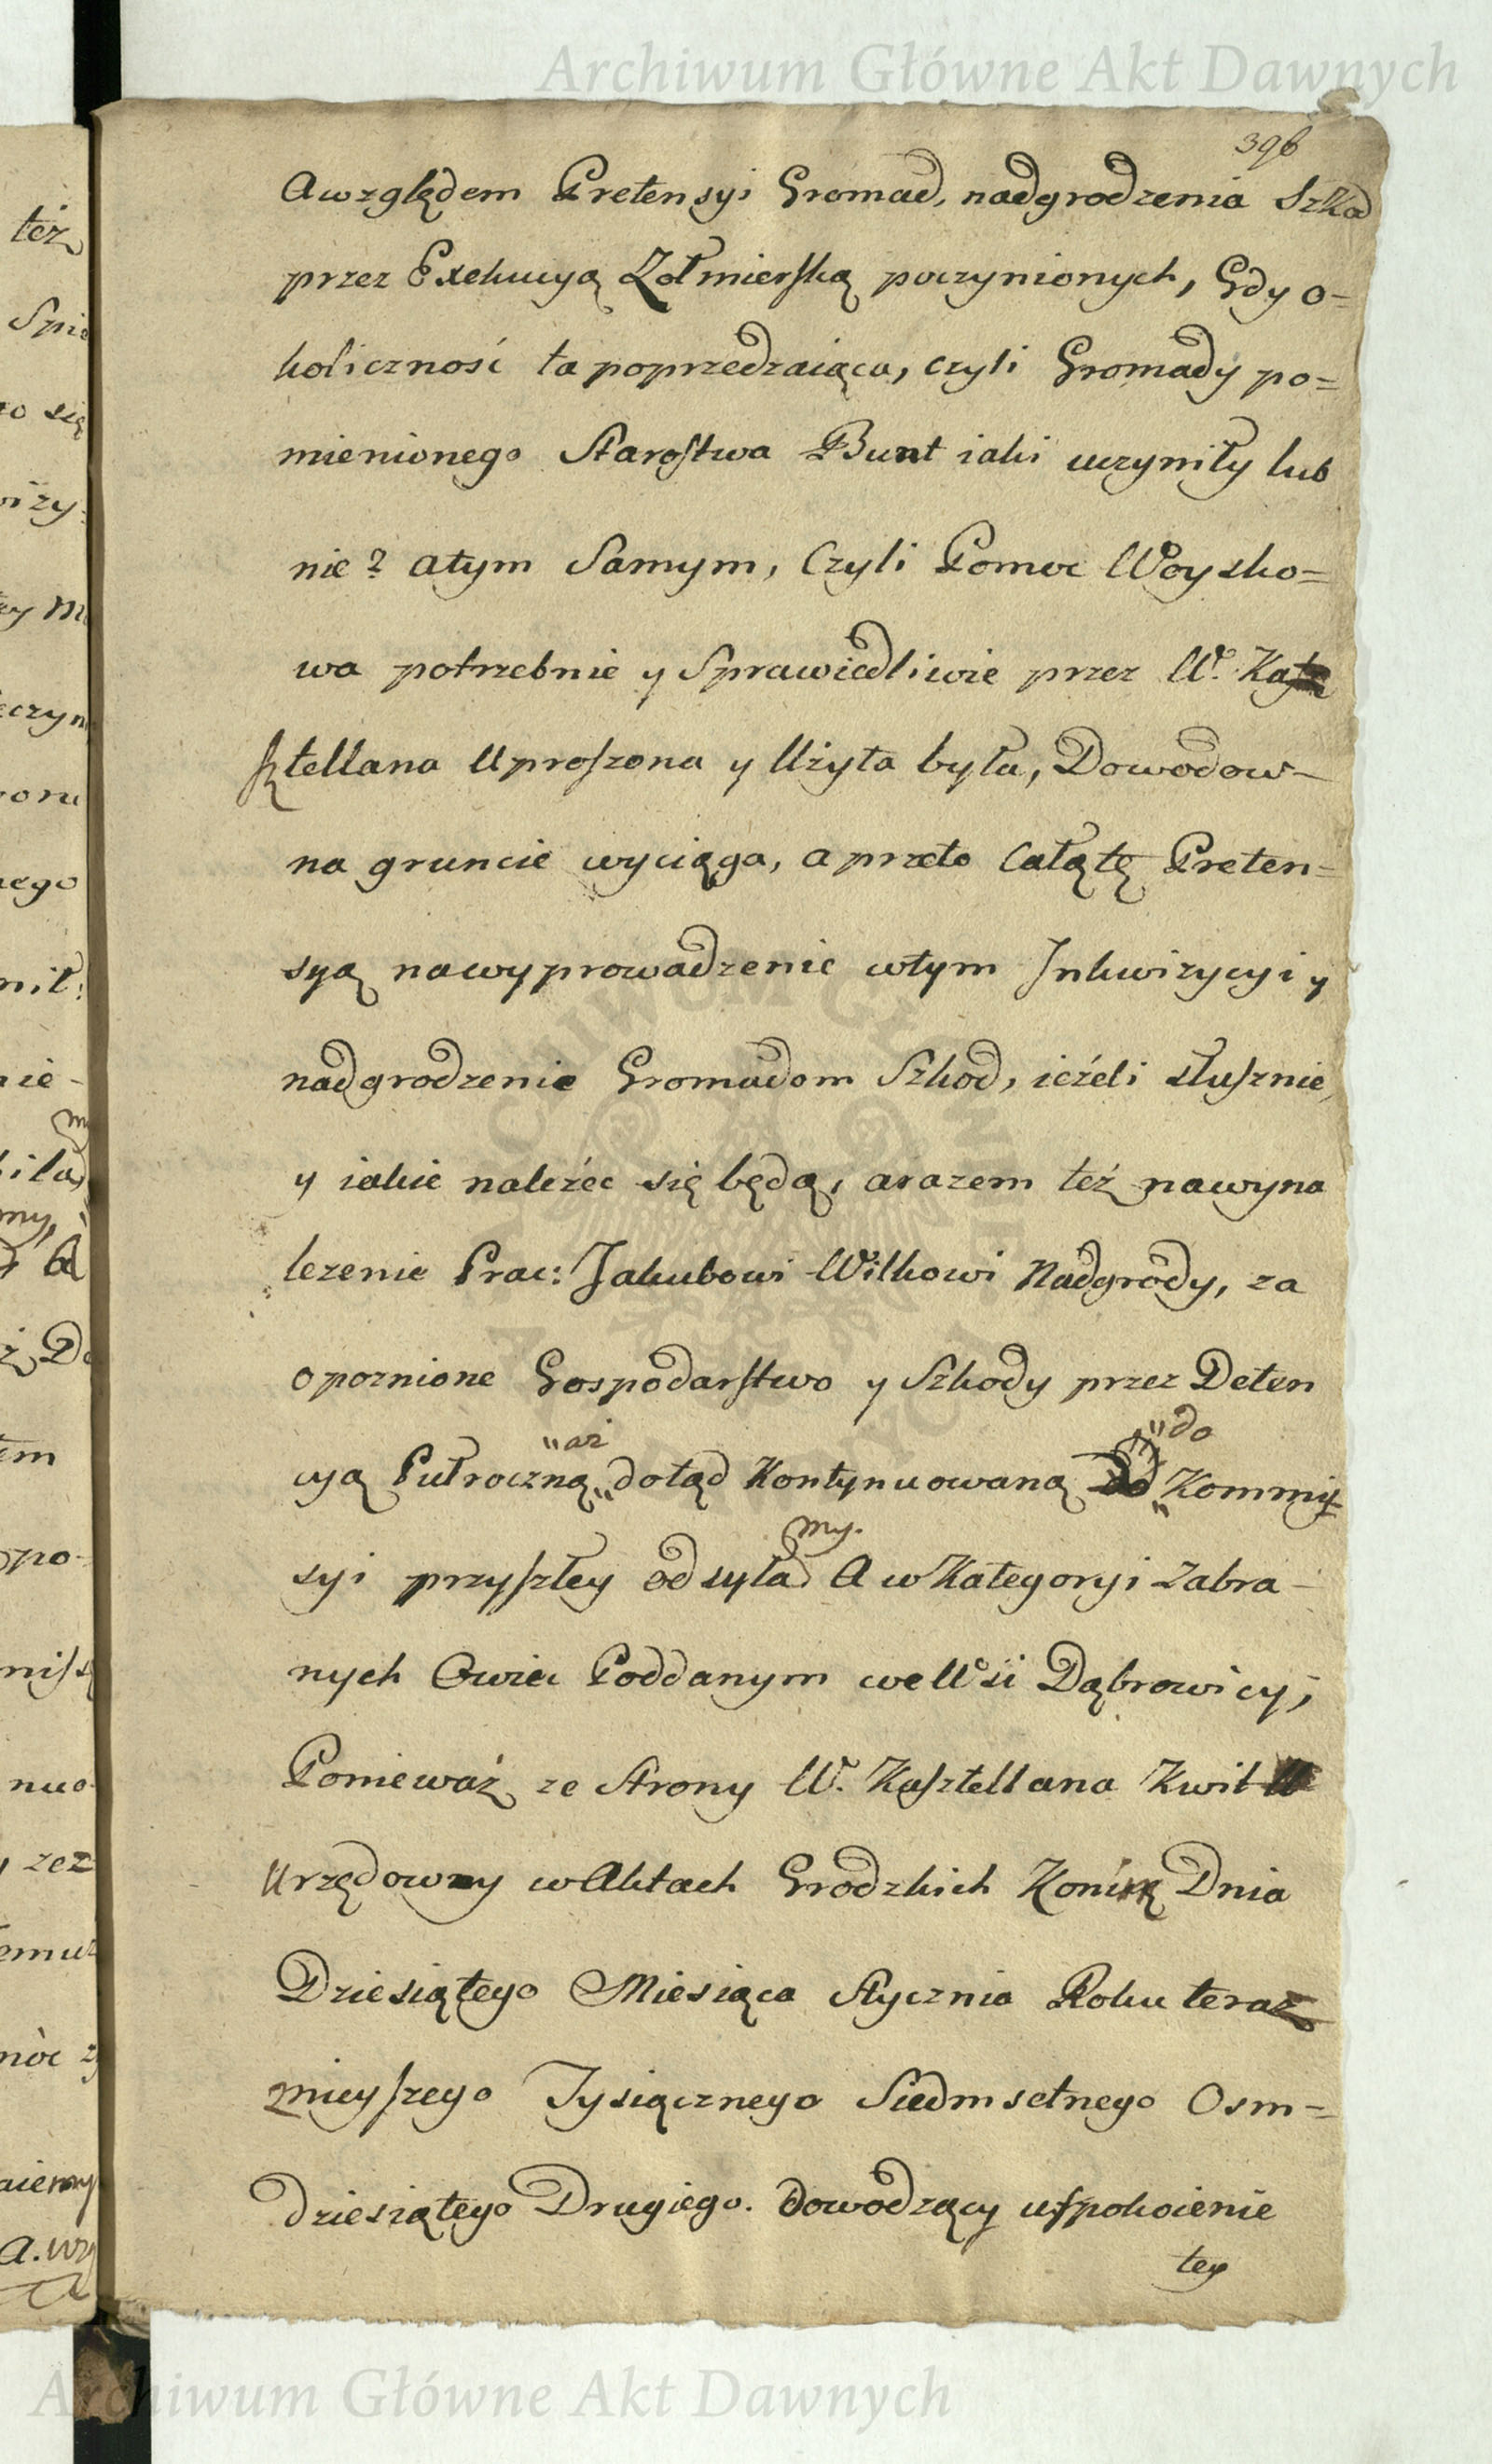 Archiwum Główne Akt Dawnych
396
Awzględem Pretensyi Gromad, nadgrodzenia Szkod
przez Exekucyą Zołmierską poczynionych, Gdy o=
koliczność ta poprzedzaiąca, czyli Gromady po=
mienionego Starostwa Bunt iaki uczyniły lub
nie? atym Samym, Czyli Pomoc Woysko=
wa potrzebnie y Sprawiedliwie przez W. Kasz
sztellana Uproszona y Użyta była, Dowodow
na gruncie wyciąga, a przeto całą tę Preten=
syą na wyprowadzenie wtym Inkwizycyi y
nadgrodzenie Gromadom Szkod, ieżeli słusznie,
y iakie należec się będą, arazem też nawyna
lezenie Prac: Jakubowi Wilkowi Nadgrody, za
opoznione Gospodarstwo y Szkody przez Deten
"aż "do
cyą Pułroczną "dotąd Kontynuowaną Kommis
my.
syi przyszłey odsyła A w Kategoryi zabra-
nych Owiec Poddanym we Wsi Dąbrowicy;
Ponieważ ze Strony W. Kasztellana Kwit
Urzędowny w Aktach Grodzkich Dnia
Dziesiątego Miesiąca Stycznia Roku teraz
znieyszego Tysiącznego Siedmsetnego Osm=
dziesiątego Drugiego. dowodzący uspokoienie
tey
też
Spie
go się
czyn
nego
nie-
em
opo-
nuo
zez
emuż
aiemy
Archiwum Główne Akt Dawnych